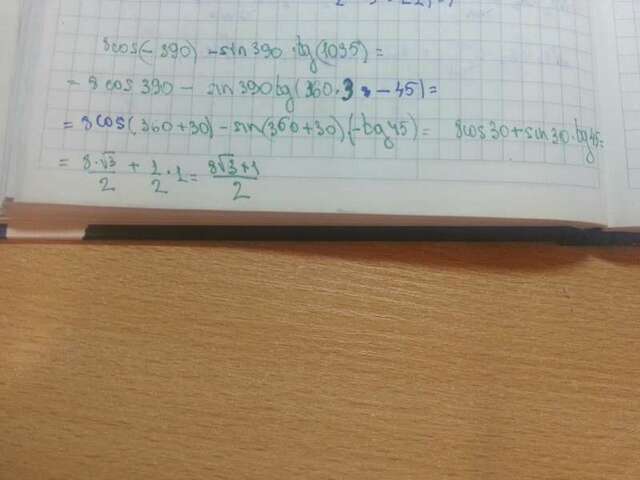 8cos(-390) - sin390·tg(1035) =
= 8cos390 - sin390tg(360·3 - 45) =
= 8cos(360+30) - sin(360+30)(-tg45) = 8cos30+sin30·tg45=
= 8·√3/2 + 1/2·1 = 8√3+1/2